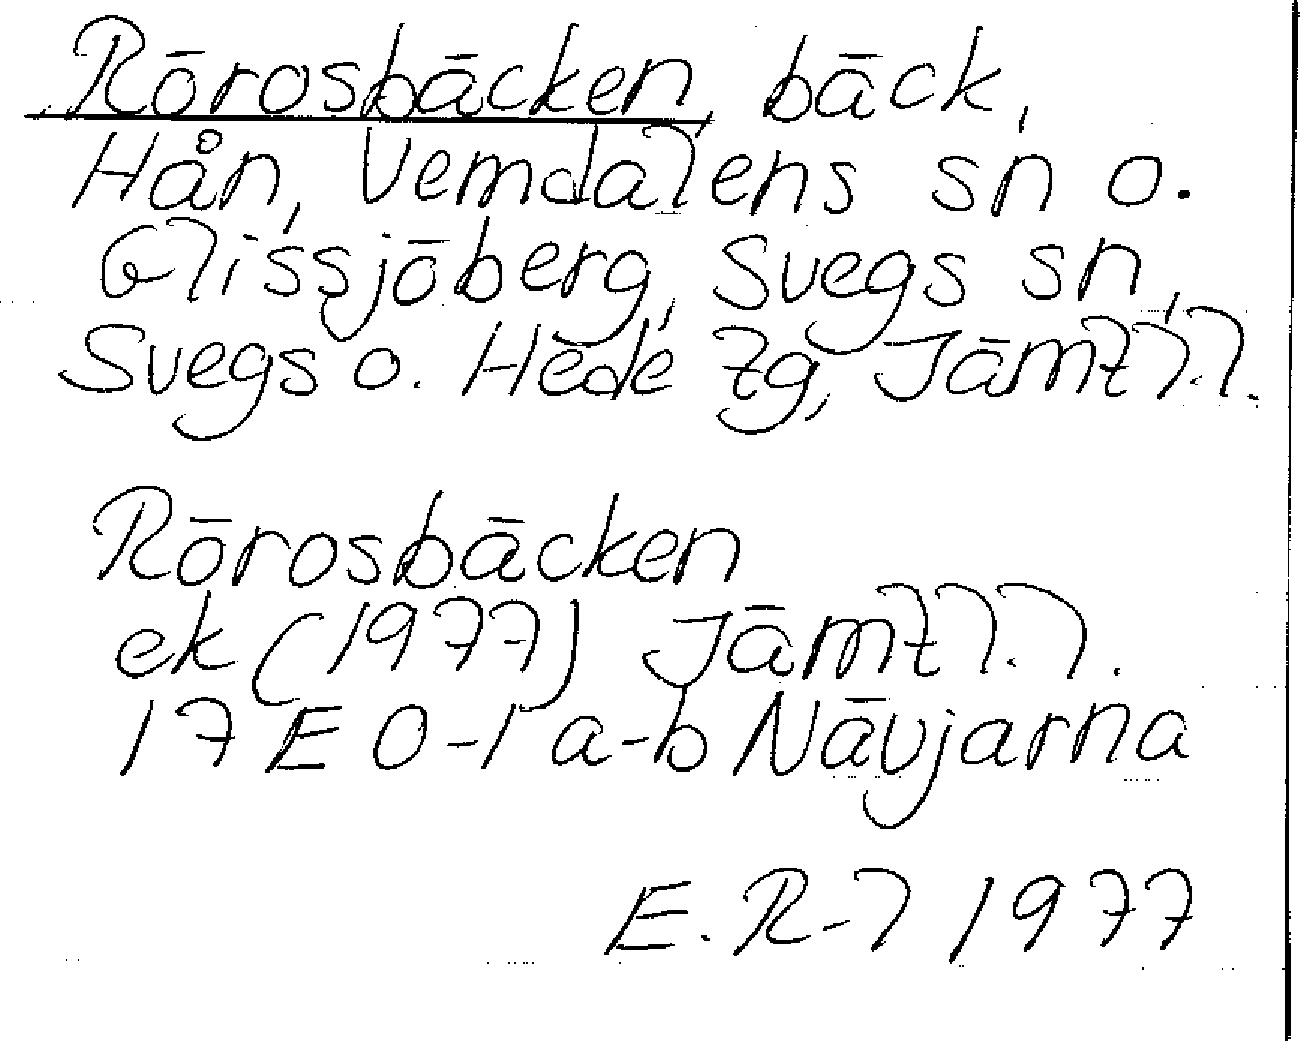 Rörosbäcken, bäck,
Hån, Vemdalens sn o.
Glissjöberg, Svegs sn,
Svegs o. Hede tg, Jämtl.l.
Rörosbäcken
ek (1977) Jämtl.l.
17 E 0-1 a-b Nävjarna
E. R-l 1977